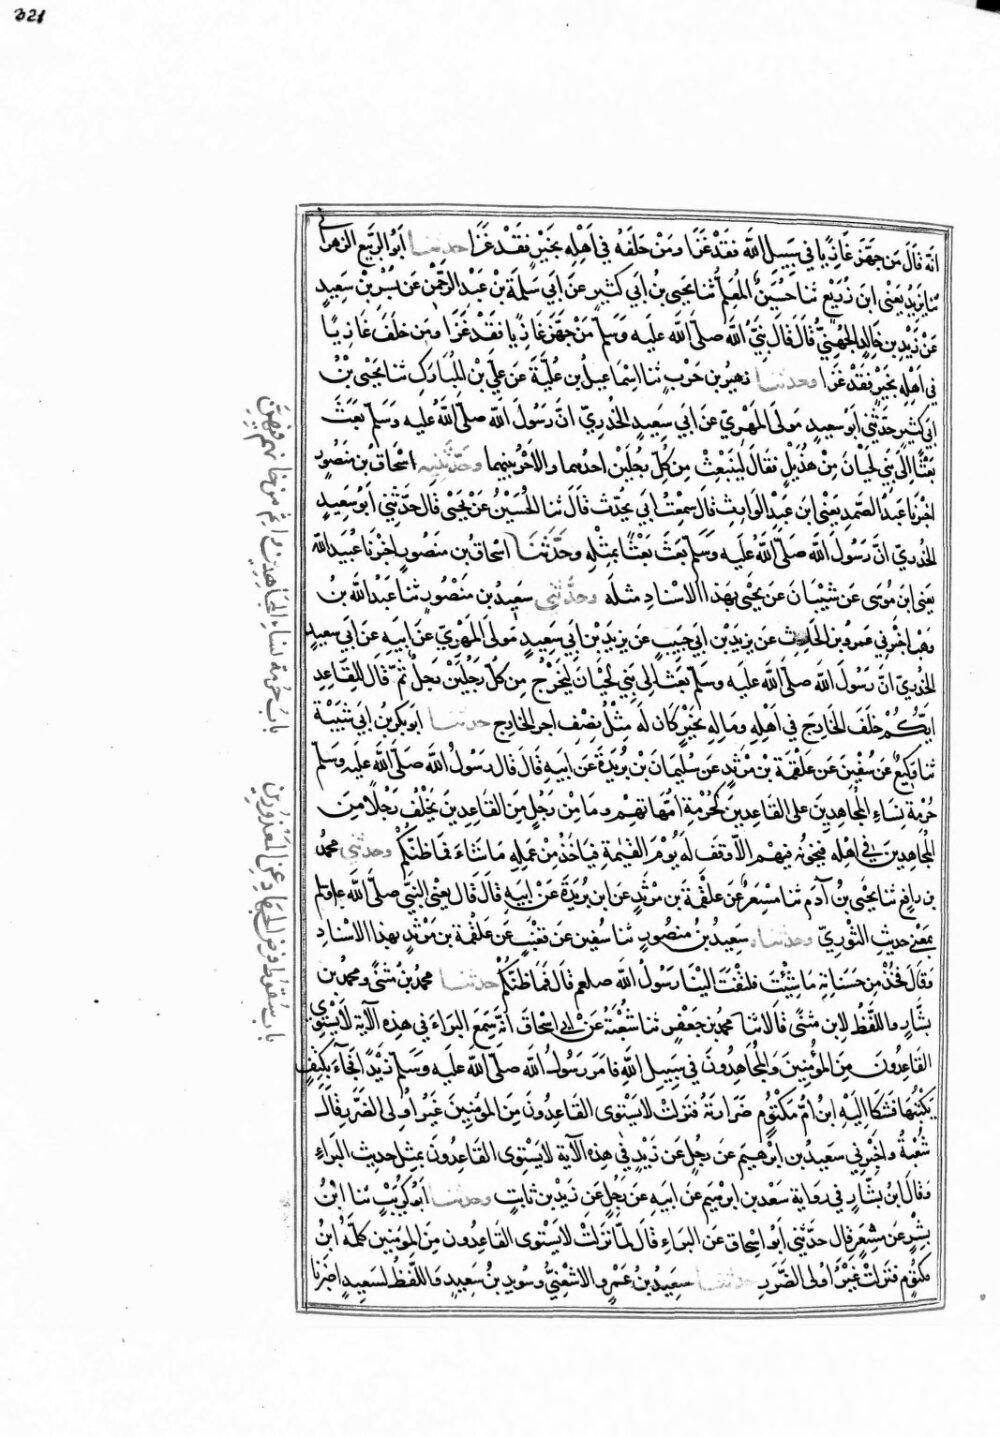 321
انه قال من جهز غازيا في سبيل الله فقد غزا ومن خلفه في اهله بخير فقد غزا حدثنا ابو الربيع الزهراني
ثنا يزيد يعني ابن زريع ثنا حسين المعلم ثنا يحيى بن ابي كثير عن ابي سلمة بن عبد الرحمن عن بسر بن سعيد
عن زيد بن خالد الجهني قال قال نبي الله صلى الله عليه وسلم من جهز غازيا فقد غزا ومن خلف غازيا
في اهله بخير فقد غزا وحدثنا زهير بن حرب ثنا اسماعيل بن علية عن علي بن المبارك ثنا يحيى بن
ابي كثير حدثني ابو سعيد مولى المهري عن ابي سعيد الخدري ان رسول الله صلى الله عليه وسلم بعث
بعثا الى بني لحيان من هذيل فقال لينبعث من كل رجلين احدهما والاجر بينهما وحدثنيه اسحاق بن منصور
اخبرنا عبد الصمد يعني ابن عبد الوارث قال سمعت ابي يحدث قال ثنا الحسين عن يحيى قال حدثني ابو سعيد
الخدري ان رسول الله صلى الله عليه وسلم بعث بعثا بمثله وحدثنا اسحاق بن منصور اخبرنا عبيد الله
يعني ابن موسى عن شيبان عن يحيى بهذا الاسناد مثله وحدثني سعيد بن منصور ثنا عبد الله بن
وهب اخبرني عمرو بن الحارث عن يزيد بن ابي حبيب عن يزيد بن ابي سعيد مولى المهري عن ابيه عن ابي سعيد
الخدري ان رسول الله صلى الله عليه وسلم بعث الى بني لحيان ليخرج من كل رجلين رجل ثم قال للقاعد
ايكم خلف الخارج في اهله وماله بخير كان له مثل نصف اجر الخارج حدثنا ابو بكر بن ابي شيبة
ثنا وكيع عن سفين عن علقمة بن مرثد عن سليمان بن بريدة عن ابيه قال قال رسول الله صلى الله عليه وسلم
حرمة نساء المجاهدين على القاعدين كحرمة امهاتهم وما من رجل من القاعدين يخلف رجلا من
المجاهدين في اهله فيخونه فيهم الا وقف له يوم القيمة فياخذ من عمله ما شاء فما ظنكم وحدثني محمد
بن رافع ثنا يحيى بن آدم ثنا مسعر عن علقمة بن مرثد عن ابن بريدة عن ابيه قال قال يعني النبي صلى الله عليه وسلم
بمعنى حديث الثوري وحدثناه سعيد بن منصور ثنا سفين عن قعنب عن علقمة بن مرثد بهذا الاسناد
وقال فخذ من حسناته ما شئت فالتفت الينا رسول الله صلعم قال فما ظنكم حدثنا محمد بن مثنى ومحمد بن
بشار واللفظ لابن مثنى قالا ثنا محمد بن جعفر ثنا شعبة عن ابي اسحاق انه سمع البراء في هذه الآية لا يستوي
القاعدون من المؤمنين والمجاهدون في سبيل الله فامر رسول الله صلى الله عليه وسلم زيدا فجاء بكتف
يكتبها فشكا اليه ابن ام مكتوم ضرارته فنزلت لا يستوى القاعدون من المؤمنين غير اولى الضرر قال
شعبة واخبرني سعيد بن ابرهيم عن رجل عن زيد في هذه الآية لا يستوى القاعدون بمثل حديث البراء
وقال ابن بشار في رواية سعد بن ابرهيم عن ابيه عن رجل عن زيد بن ثابت وحدثنا ابو كريب ثنا ابن
بشر عن مسعر قال حدثني ابو اسحاق عن البراء قال لما نزلت لا يستوى القاعدون من المؤمنين كلمه ابن
مكتوم فنزلت غير اولى الضرر حدثنا سعيد بن عمرو الاشعثي وسويد بن سعيد واللفظ لسعيد اخبرنا
باب حرمة نساء المجاهدين واثم من خانهم فيهن
باب سقوط فرض الجهاد عن المعذورين